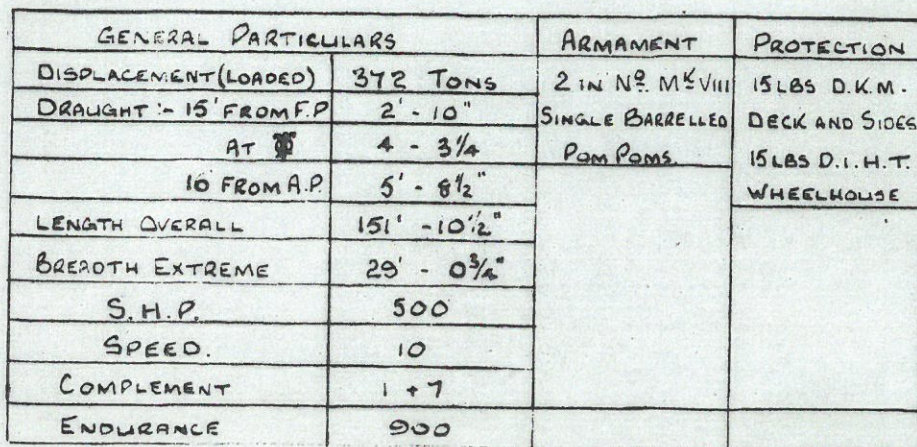 GENERAL PARTICULARS ARMAMENT PROTECTION
DISPLACEMENT (LOADED) 372 TONS 2 IN Nº MK VIII 15 LBS D.K.M.
DRAUGHT :- 15' FROM F.P 2' - 10" SINGLE BARRELLED DECK AND SIDES
AT 4 - 3¼ POM POMS. 15 LBS D.I.H.T.
10 FROM A.P. 5' - 8½" WHEELHOUSE
LENGTH OVERALL 151' - 10½"
BREADTH EXTREME 29' - 0¾"
S.H.P. 500
SPEED. 10
COMPLEMENT 1 + 7
ENDURANCE 900